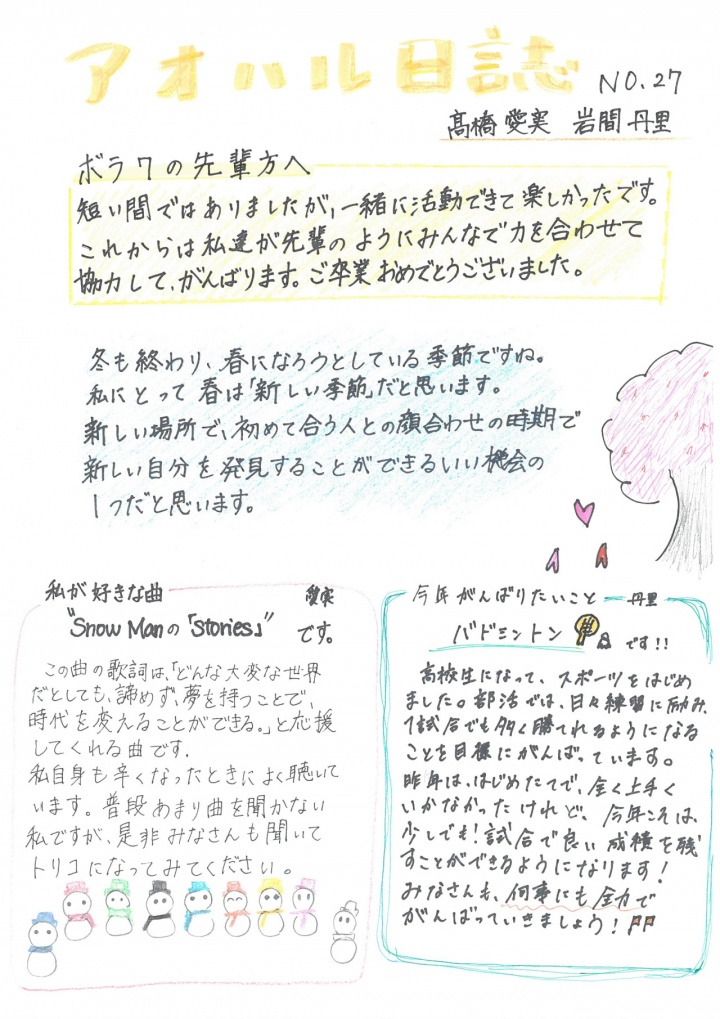 アオハル日誌 NO.27
髙橋愛実 岩間丹里
ボラワの先輩方へ
短い間ではありましたが、一緒に活動できて楽しかったです。
これからは私達が先輩のようにみんなで力を合わせて
協力して、がんばります。ご卒業おめでとうございました。
冬も終わり、春になろうとしている季節ですね。
私にとって春は「新しい季節」だと思います。
新しい場所で、初めて合う人との顔合わせの時期で
新しい自分を発見することができるいい機会の
1つだと思います。
私が好きな曲 愛実
"Snow Manの「Stories」" です。
この曲の歌詞は、「どんな大変な世界
だとしても、諦めず、夢を持つことで、
時代を変えることができる。」と応援
してくれる曲です.
私自身も辛くなったときによく聴いて
います。普段あまり曲を聞かない
私ですが、是非みなさんも聞いて
トリコになってみてください。
今年がんばりたいこと 丹里
バドミントン です!!
高校生になって、スポーツをはじめ
ました。部活では、日々練習に励み、
1試合でも多く勝てれるようになる
ことを目標にがんばっています。
昨年は、はじめたてで、全く上手く
いかなかったけれど、今年こそは、
少しでも!試合で良い成績を残
すことができるようになります!
みなさんも、何事にも全力で
がんばっていきましょう!